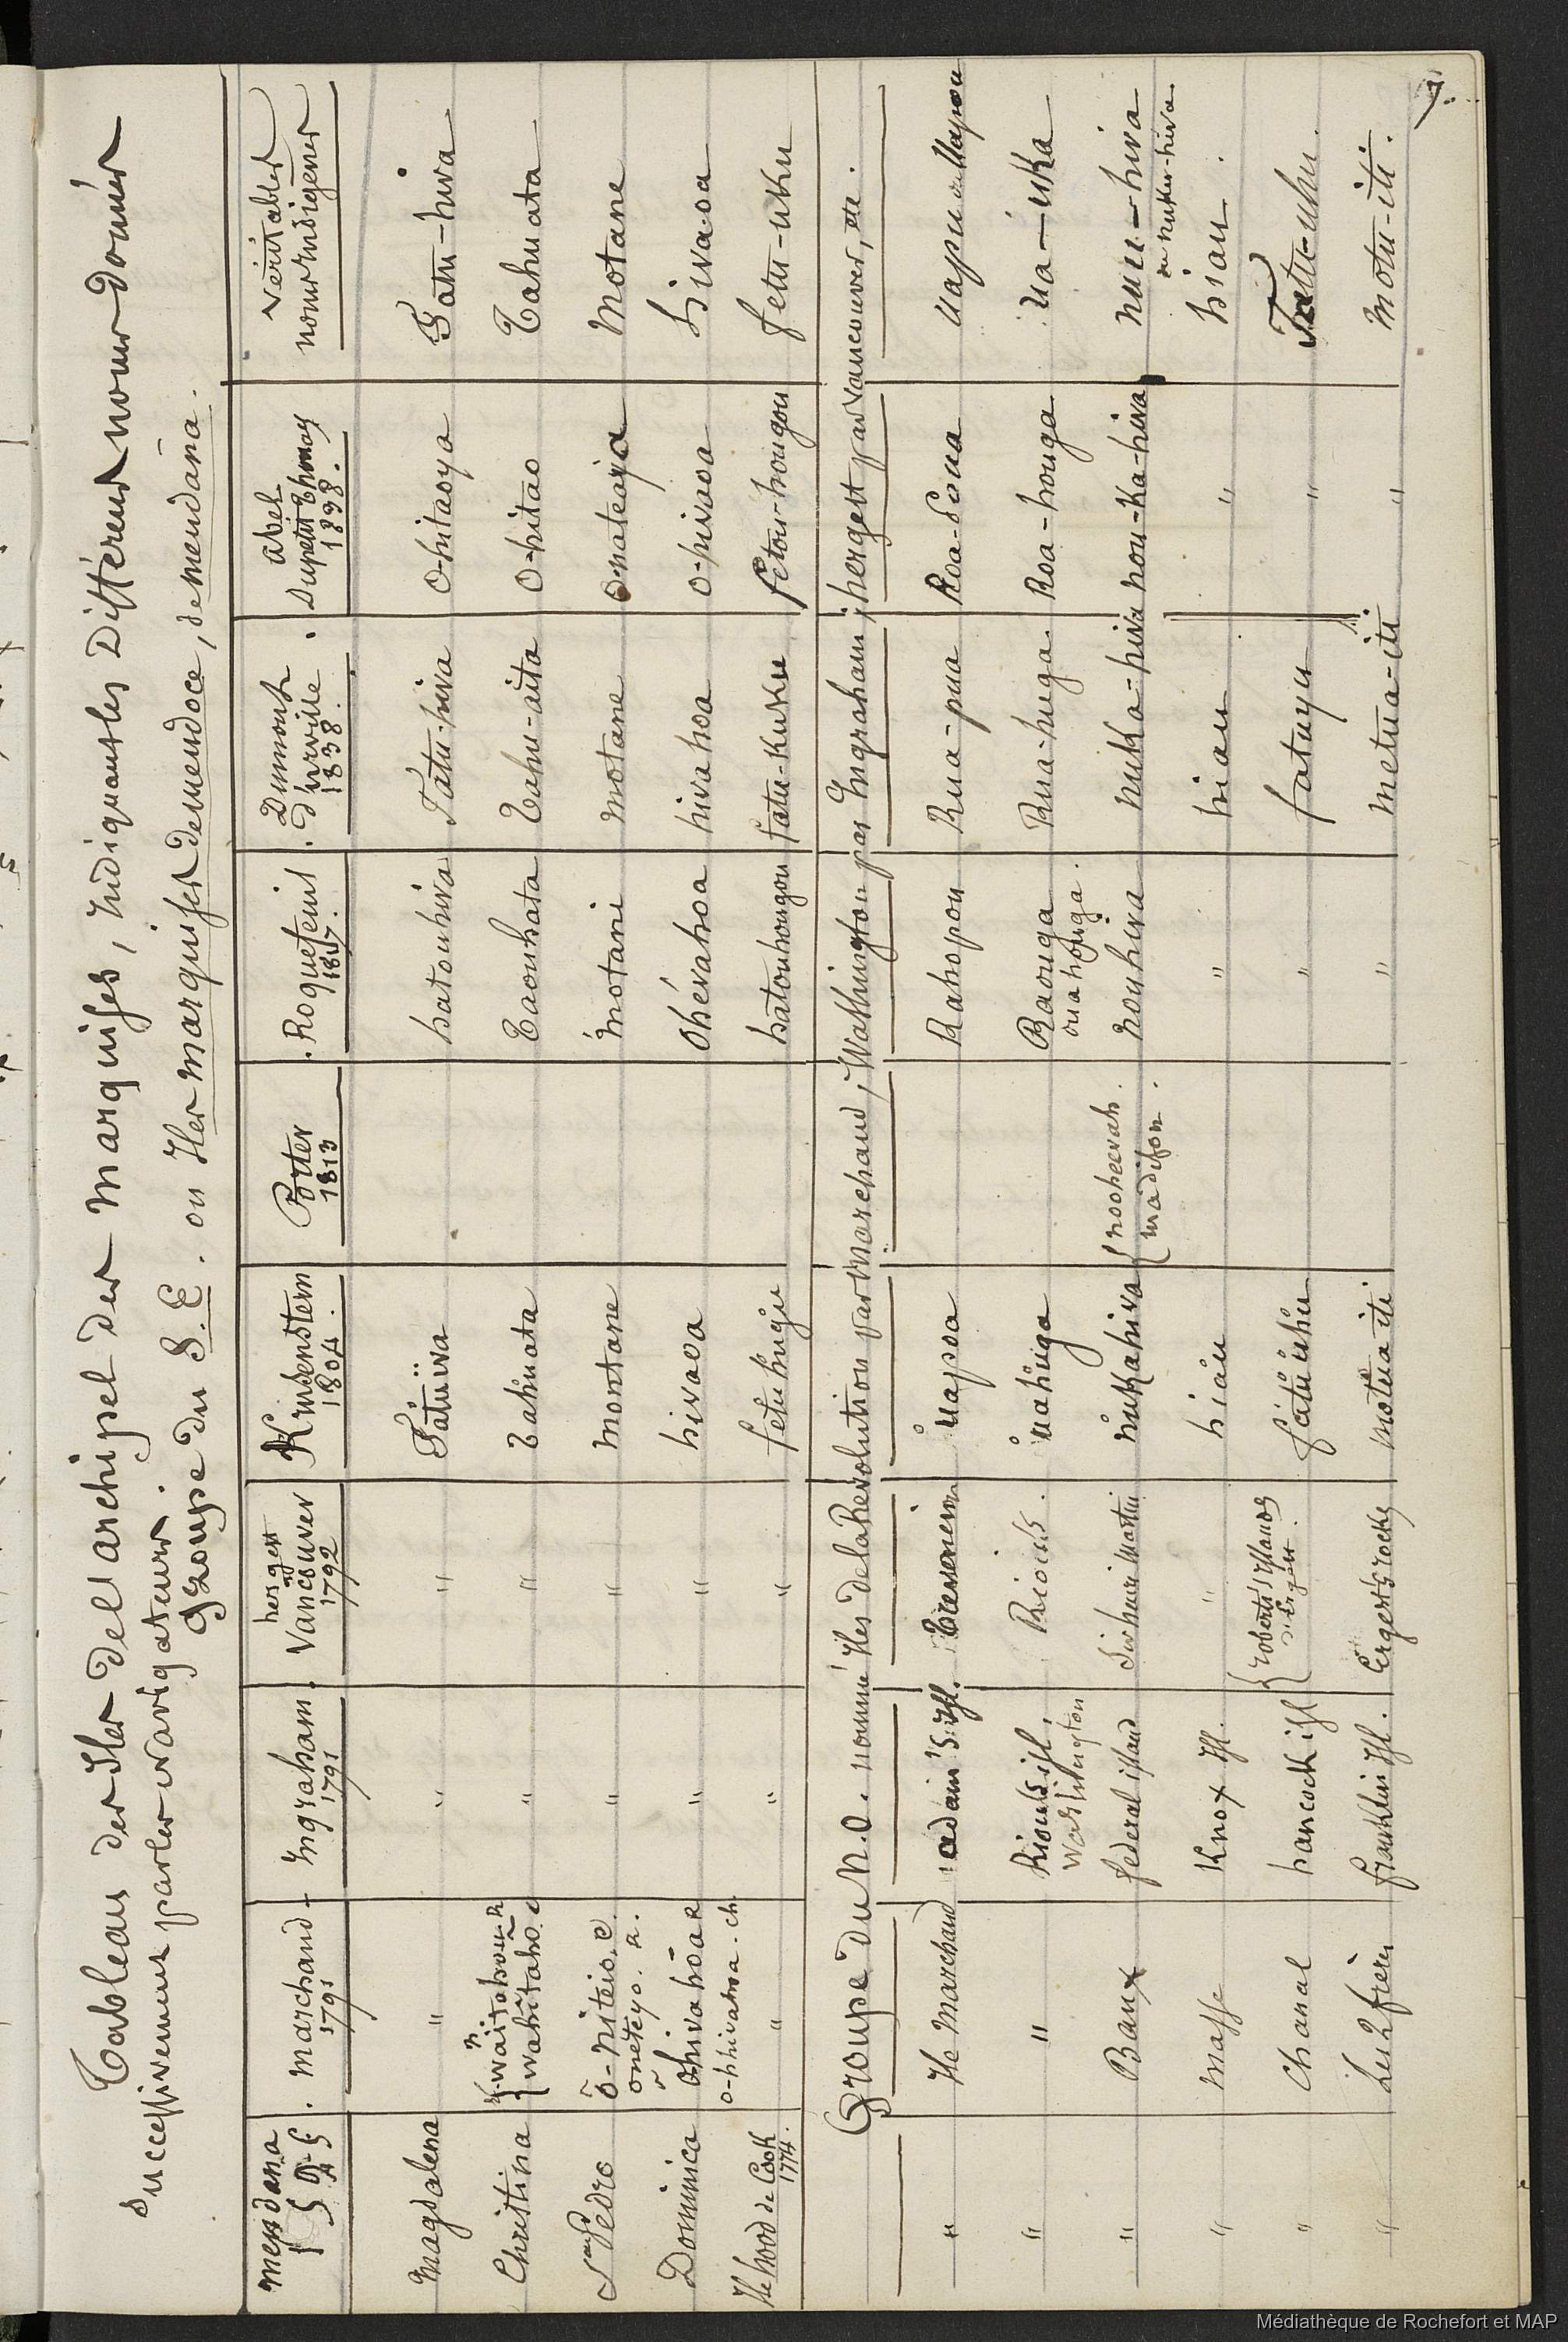 Tableau des Iles de l'archipel des marquises, Indiquant les Différents noms donnés
successivement par les navigateurs.
Groupe du S.E. ou Iles marquises de mendoce, de mendana.
mendana 1595 | marchand 1791 | Ingraham 1791 | hergest Vancouver 1792 | Krusenstern 1804 | Porter 1813 | Roquefeuil 1817 | Dumont d'urville 1838 | abel Dupetit Thouars 1838 | Véritables noms indigènes
Magdalena | " | " | " | Fatuiva | | hatouhiva | Fatu-hiva | O-hitaoya | Fatu-hiva
Christina | waitahou wahitaho | " | " | Tahuata | | Taouhata | Tahu-aita | O-hitao | Tahuata
San Pedro | o-niteio. c. oneteyo. R. | " | " | Montane | | motani | motane | O-nateaya | Motane
Dominica | ohivahoa R o-hhivahoa. ch. | " | " | hivaoa | | Ohévahoa | hivahoa | O-hivaoa | hivaoa
Ile hood de Cook 1774. | " | " | " | fetuhugu | | hatouhougou | fatu-kuku | fetou-hougou | fetu-uku
Groupe du N.O. nommé Iles de la Revolution par Marchand; Wathington par Ingraham; hergest par Vancouver, etc.
" | Ile Marchand | adam's Isl. | Trevenenn | uapoa | | Rahopou | Rua-pua | Roa-Poua | uapu ou Uapou
" | " | Riou's isl, Washington | Riou's. | uahuga | | Raouga ouahouga. | Rua-huga. | Roa-houga | ua-uka
" | Baux | federal island | Sir henri Martin | nukahiva | nooheevah. madison. | nouhiva | nuka-hiva | nou-Ka-hiva | nuu-hiva ou nuku-hiva.
" | Masse | Knox Isl. | " | hiau | | " | hiau | " | hiau.
" | Chanal | hancock isl | roberts Islands | fatuuhu | | " | fatuyu | " | Fatu-uhu.
" | Les 2 frères | franklin Isl. | Ergest's rocks | motua-iti | | " | metua-iti | " | Motu-iti.
7.
Médiathèque de Rochefort et MAP